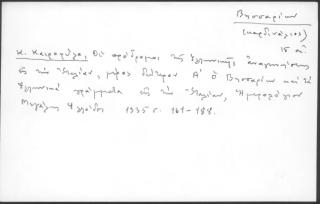 Βησσαρίων
(καρδινάλιος)
15 αἰ.
Κ. Καιροφύλα, Οἱ πρόδρομοι τῆς Ἑλληνικῆς ἀναγεννήσεως
εἰς τὴν Ἰταλίαν, μέρος δεύτερον Α' ὁ Βησσαρίων καὶ τὰ
Ἑλληνικὰ γράμματα εἰς τὴν Ἰταλίαν, Ἡμερολόγιον
Μεγάλης Ἑλλάδος 1935 σ. 161-188.